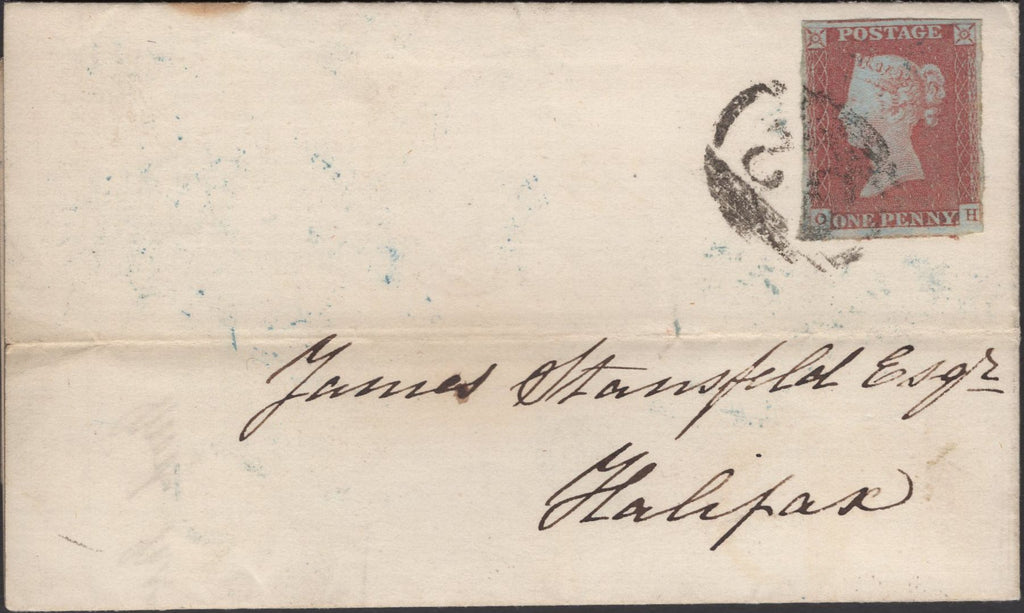 POSTAGE
2
O ONE PENNY. H
James Stansfeld Esqr
Halifax